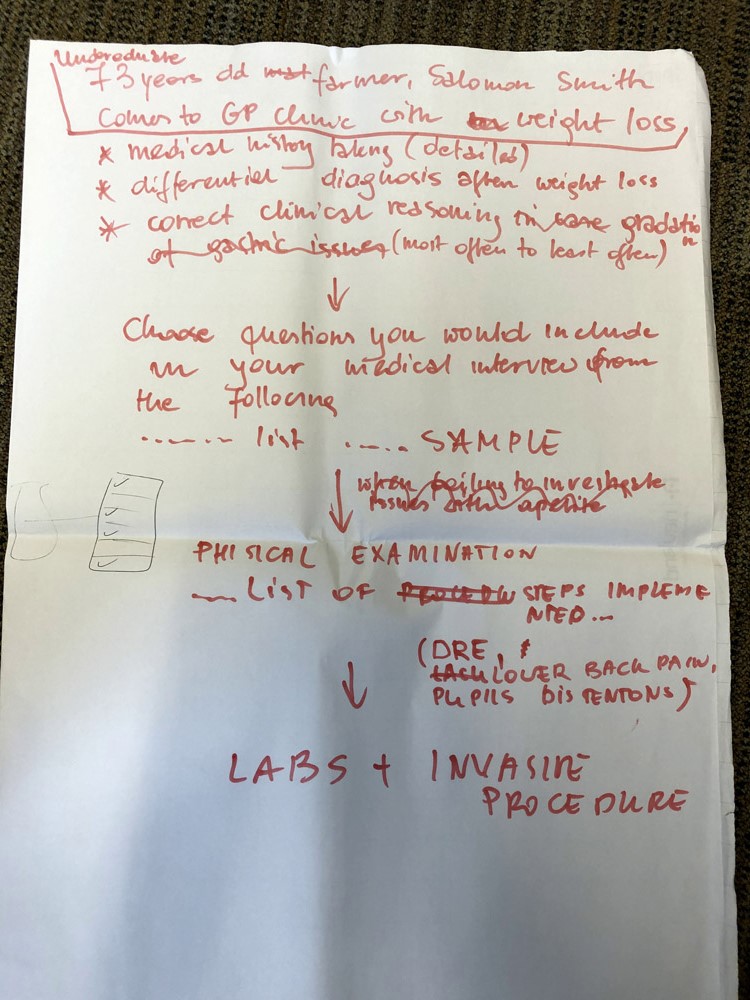 Undereduate
73 years old farmer, Salomon Smith
Comes to GP clinic with weight loss,
* medical history taking (detailed)
* differential diagnosis after weight loss
* correct clinical reasoning in case gradation
of gastric issues (most often to least often)
Choose questions you would include
in your medical interview from
the following
....... list ..... SAMPLE
when failing to investigate
issues with apetite
PHISICAL EXAMINATION
.... LIST OF PROCEDU STEPS IMPLEME
NTED...
(DRE,
LOVER BACK PAIN,
PUPILS DISTENTONS)
LABS + INVASIVE
PROCEDURE